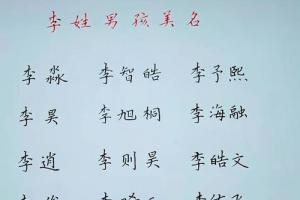 李姓男孩美名
李淼 李智皓 李予熙
李昊 李旭桐 李海融
李逍 李则昊 李皓文